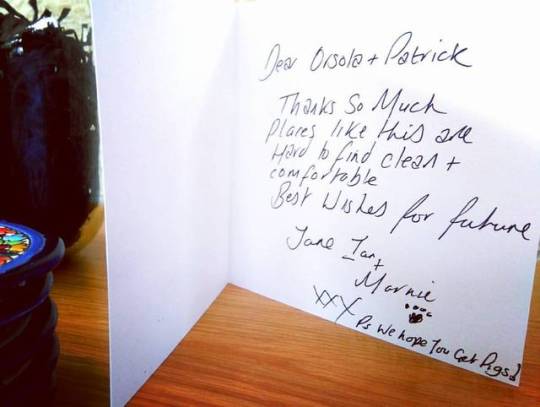 Dear Orsola + Patrick
Thanks So Much
Places like this are
Hard to find clean +
comfortable
Best Wishes for future
Jane Ian
+
Marnie
XXX
Ps We hope You Get Pigs!